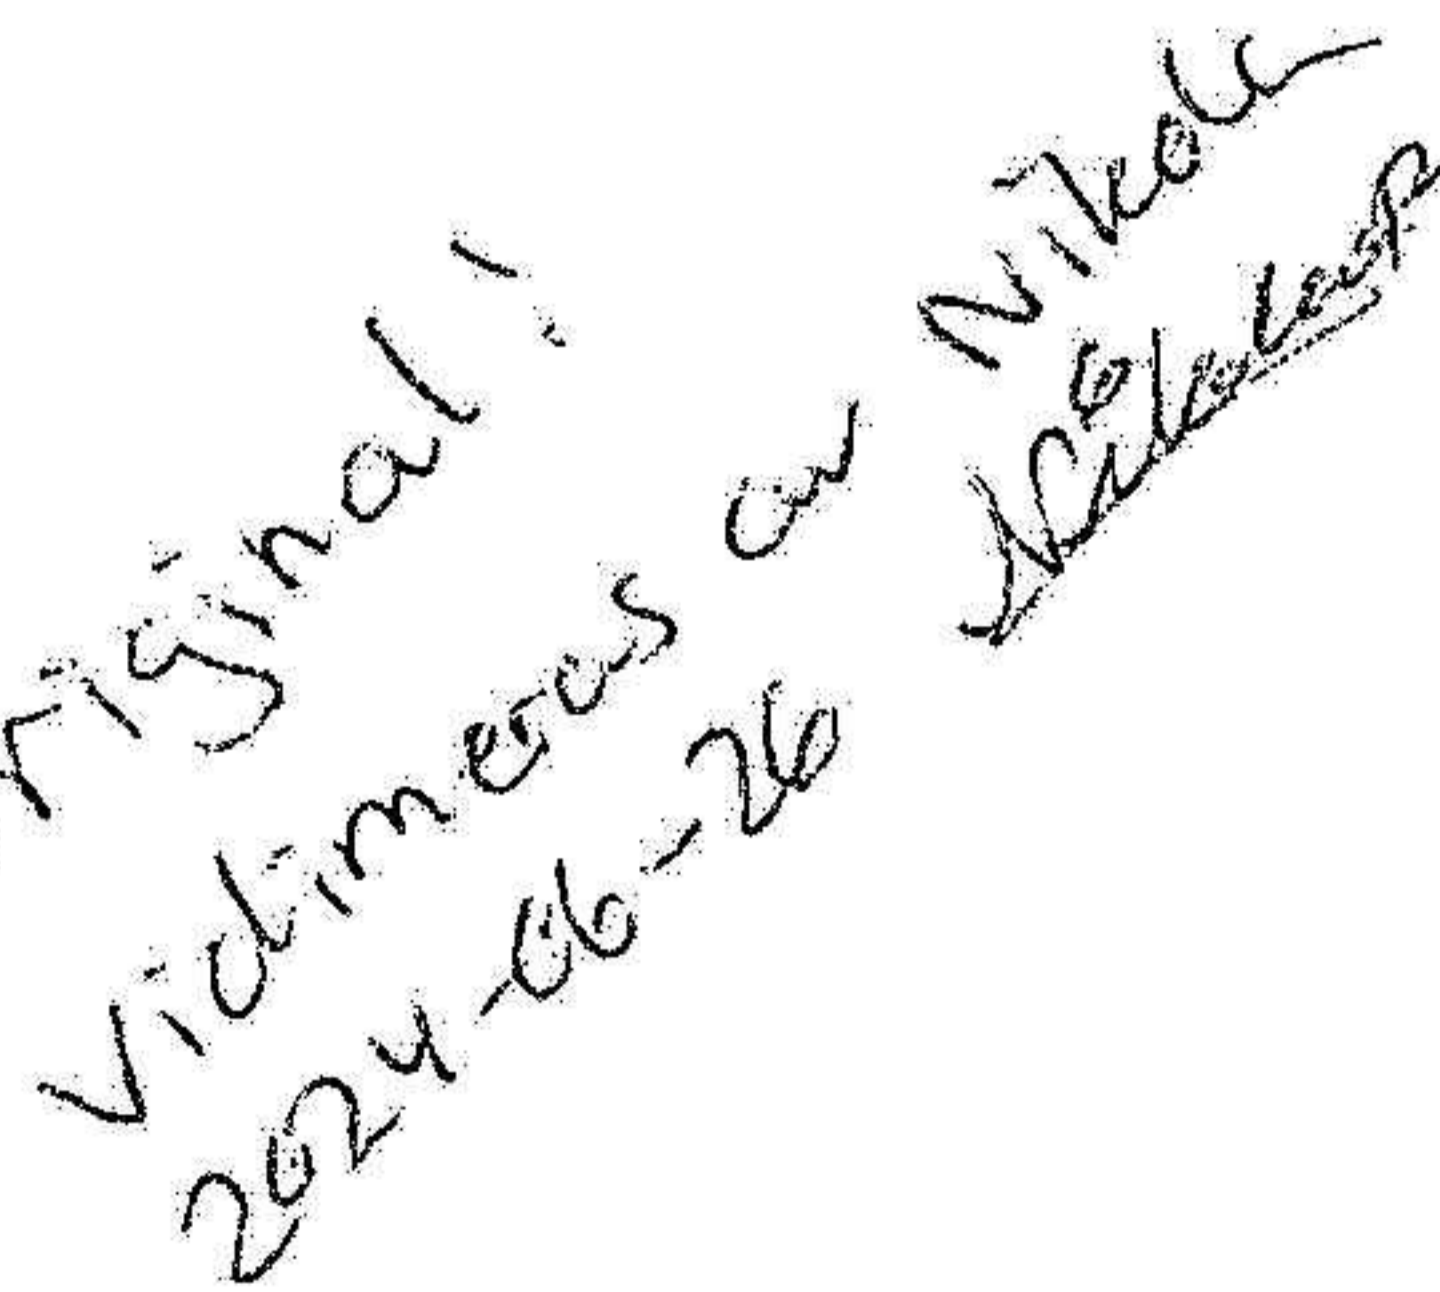 riginal!
Vidimeras av Nikola
2024-06-26